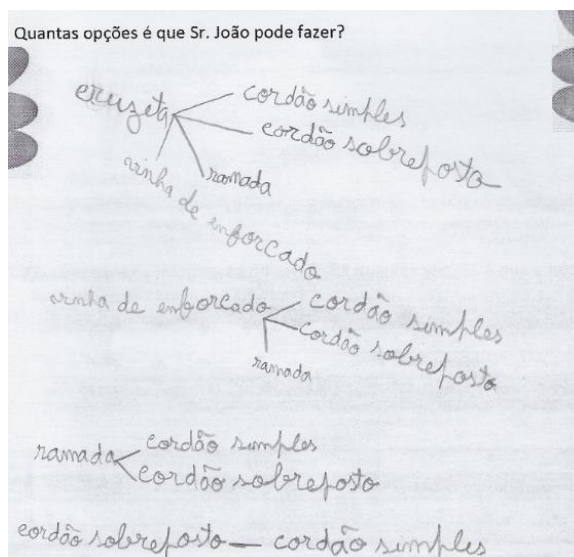 Quantas opções é que Sr. João pode fazer?
cruzeta
cordão simples
cordão sobreposto
ramada
vinha de enforcado
vinha de enforcado
cordão simples
cordão sobreposto
ramada
ramada
cordão simples
cordão sobreposto
cordão sobreposto — cordão simples